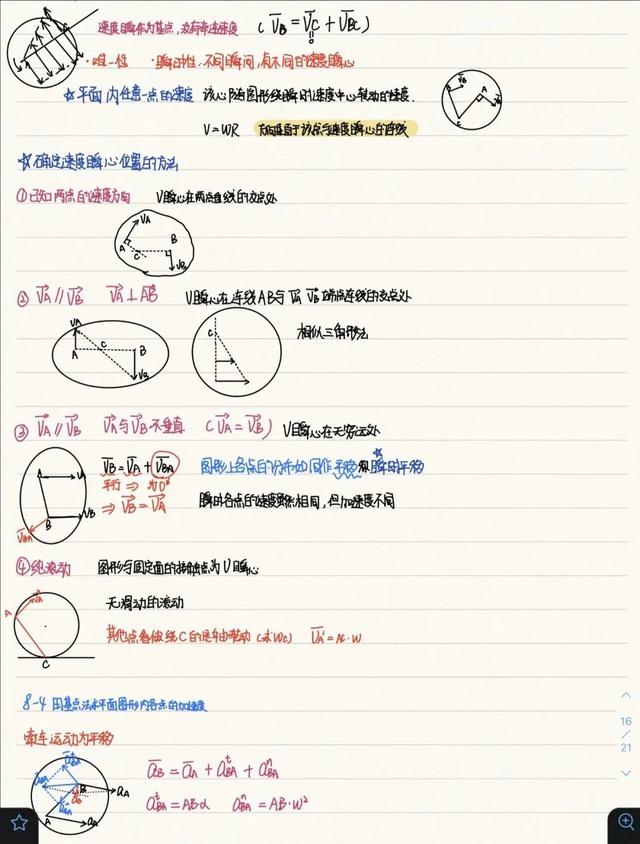 速度瞬心为基点，没有牵连速度 ( V̄B = V̄C + V̄BC )
0
·唯一性 ·瞬时性，不同瞬间，有不同的速度瞬心
☆平面内任意一点的速度 该心随图形绕瞬时速度中心转动的速度.
V=WR 方向垂直于该点与速度瞬心的连线
☆确定速度瞬心位置的方法
①已知两点的速度方向 V瞬心在两点垂线的交点处
VA
A
C
B
VB
② V̄A ∥ V̄B V̄A ⊥ AB V瞬心在连线AB与 V̄A V̄B 端点连线的交点处
相似三角形法
VA
A
C
B
VB
C
③ V̄A ∥ V̄B V̄A与V̄B不垂直 ( V̄A = V̄B ) V瞬心在无穷远处
V̄B = V̄A + V̄BA 图形上各点的分布如同作平移 和瞬时平移
平行 ⇒ 为0
⇒ V̄B = V̄A 瞬时各点的速度虽然相同，但加速度不同
A
VA
B
VB
V̄BA
④纯滚动 图形与固定面的接触点为V瞬心
无滑动的滚动
其他点看做绕C的定轴转动 (求WC) V̄A = AC·W
A
VA
C
8-4 用基点法求平面图形内各点的加速度
牵连运动为平移
āB = āA + āᵗBA + āⁿBA
aᵗBA = AB·α aⁿBA = AB·W²
A
B
aA
aA
16
/
21